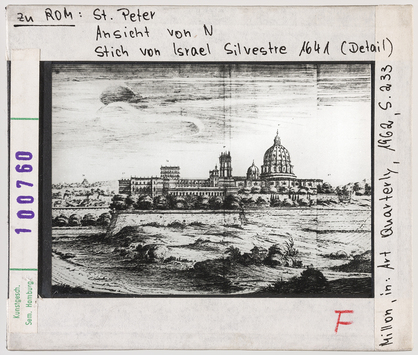 zu ROM: St. Peter
Ansicht von N
Stich von Israel Silvestre 1641 (Detail)
Millon, in: Art Quarterly, 1962, S. 233
100760
Kunstgesch.
Sem. Hamburg.
F